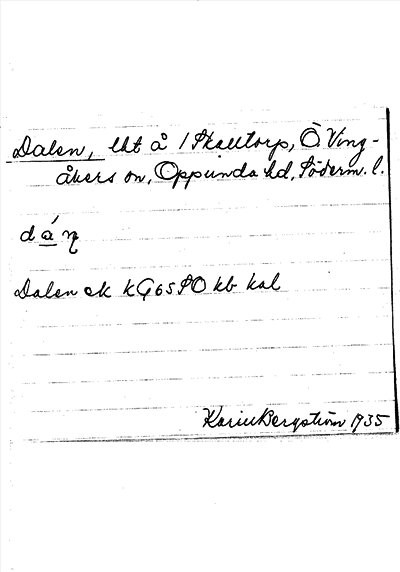 Dalen, lht å 1 Skaltorp, Ö Ving-
åkers sn, Oppunda hd, Söderm. l.
dáņ
Dalen ek kG65SO kb kal
Karin Bergström 1935